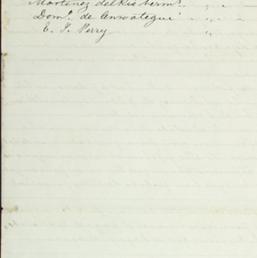 Martinez del Rio herms.
Domo. de Ansoátegui
C. T. Perry